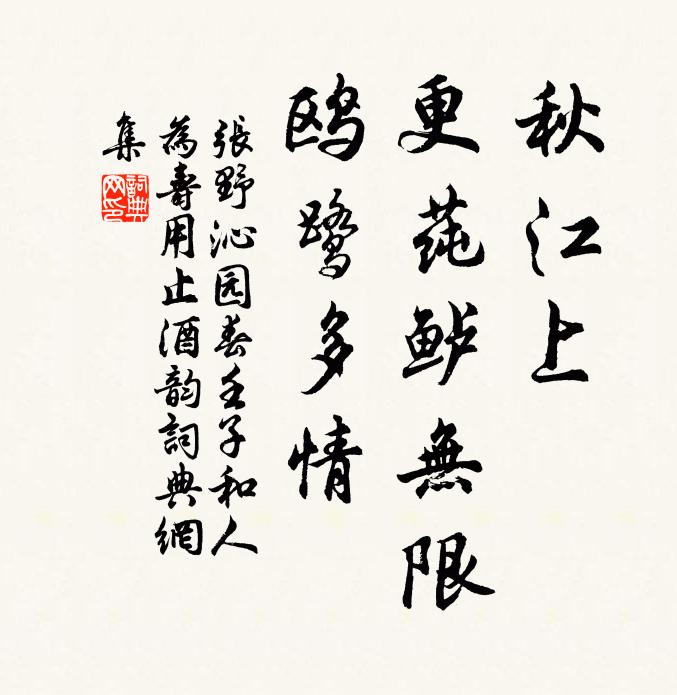 秋江上
更莼鲈無限
鸥鹭多情
張野沁园春壬子和人
為壽用止酒韵詞典網
集
詞典
网印